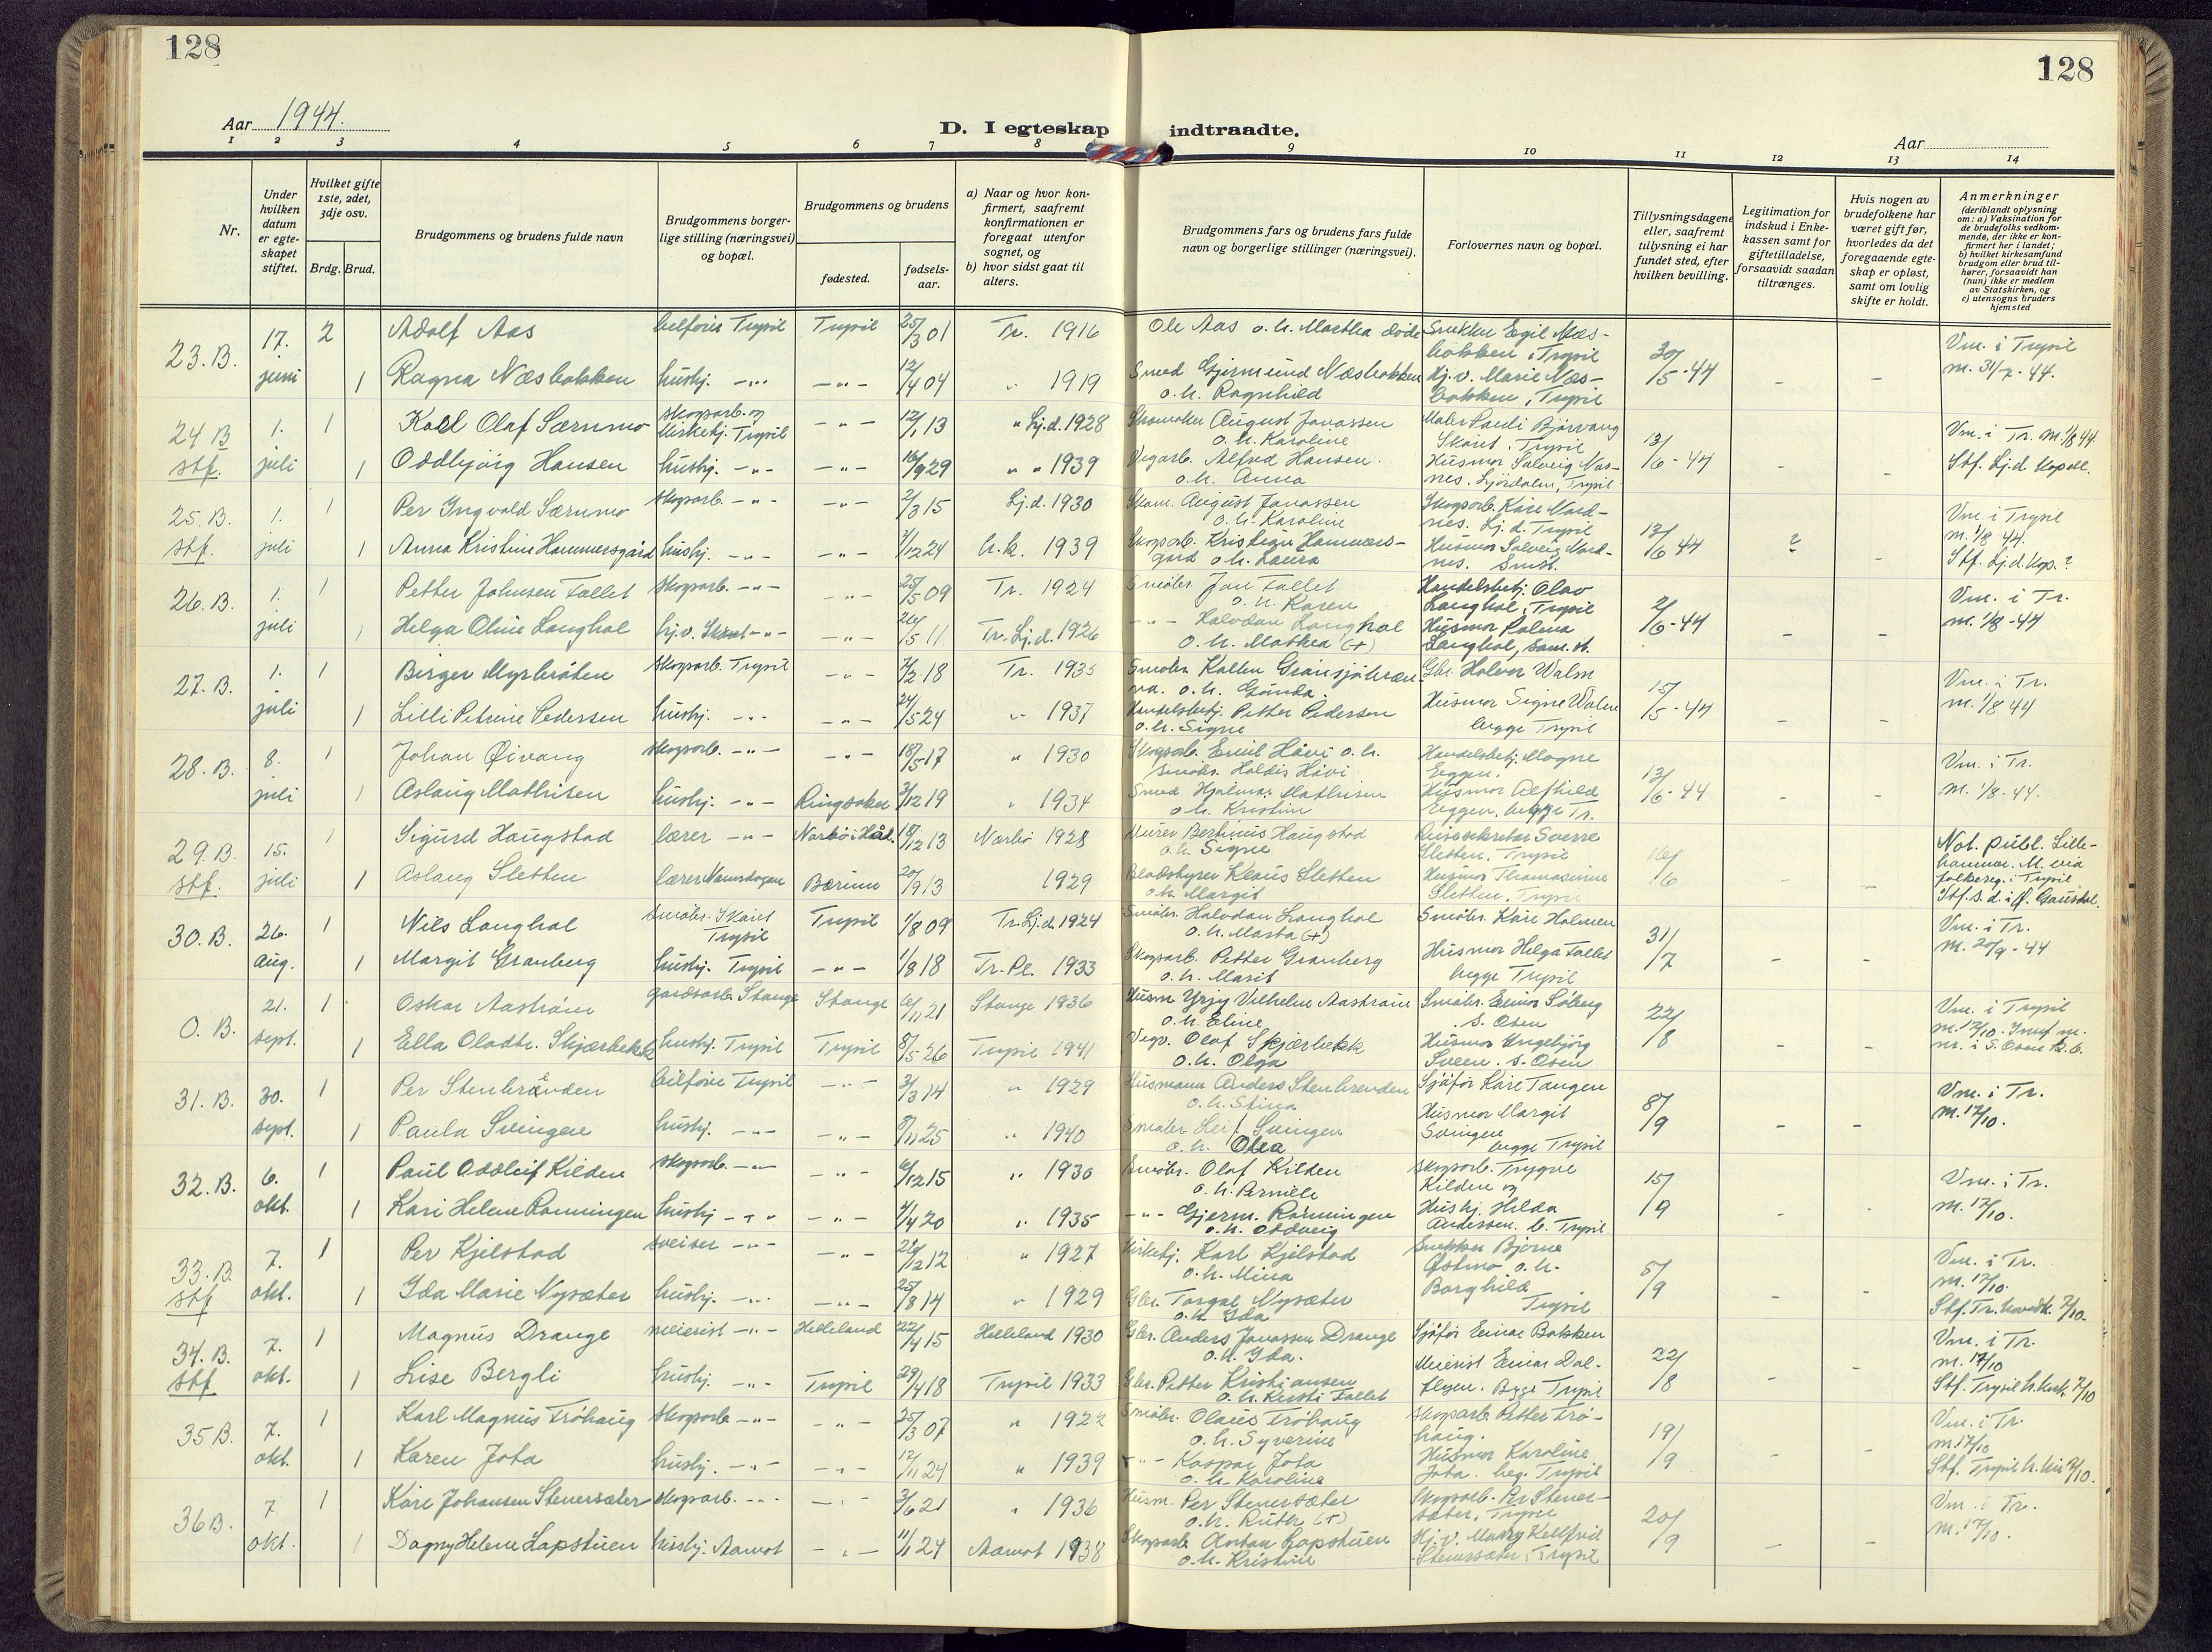 128
128
Aar 1944.
D. I egteskap indtraadte.
Aar
1 2 3 4 5 6 7 8 9 10 11 12 13 14
Nr.
Under hvilken datum er egteskapet stiftet.
Hvilket gifte 1ste, 2det, 3dje osv.
Brdg. Brud.
Brudgommens og brudens fulde navn
Brudgommens borgerlige stilling (næringsvei) og bopæl.
Brudgommens og brudens
fødested.
fødselsaar.
a) Naar og hvor konfirmert, saafremt konfirmationen er foregaat utenfor sognet, og
b) hvor sidst gaat til alters.
Brudgommens fars og brudens fars fulde navn og borgerlige stillinger (næringsvei).
Forlovernes navn og bopæl.
Tillysningsdagene eller, saafremt tillysning ei har fundet sted, efter hvilken bevilling.
Legitimation for indskud i Enkekassen samt for giftetilladelse, forsaavidt saadan tiltrænges.
Hvis nogen av brudefolkene har været gift før, hvorledes da det foregaaende egteskap er opløst, samt om lovlig skifte er holdt.
Anmerkninger
(deriblandt oplysning om: a) Vaksination for de brudefolks vedkommende, der ikke er konfirmert her i landet; b) hvilket kirkesamfund brudgom eller brud tilhører, forsaavidt han (hun) ikke er medlem av Statskirken, og c) utensogns bruders hjemsted
23. B. 17. juni 2 Adolf Aas Trysil Trysil 25/3 01 Tr. 1916 Ole Aas o.h. Martha døde Snekker Egil Næsbakken i Trysil 30/5-44 Vm. i Trysil
1 Ragna Næsbakken hushj. -"- -"- 12/4 04 " 1919 Smed Gjermund Næsbakken o.h. Ragnhild Hj.v. Marie Næsbakken, Trysil
24 B stf. 1. juli 1 Karl Olaf Særnmo skogsarb. og kirketj. Trysil -"- 12/1 13 " Lj.d. 1928 Skomaker August Jonassen o.h. Karoline Maler Pauli Bjørvang Skåret, Trysil 13/6-44 Vm. i Tr. m. 1/8 44.
1 Oddbjörg Hansen hushj. -"- -"- 16/9 29 " " 1939 Vegarb. Alfred Hansen o.h. Anna Husmor Solveig Nornes. Ljørdalen, Trysil Stf. Lj.d. Kapell.
25. B. stf. 1. juli 1 Per Ingvald Særnmo skogsarb. -"- -"- 2/3 15 Lj.d. 1930 Skom. August Jonassen o.h. Karoline Skogsarb. Kåre Nordnes. Lj.d. Trysil 13/6 44 ? Vm. i Trysil m. 1/8 44.
1 Anna Kristine Hammersgård hushj. -"- -"- 7/12 24 h.k. 1939 Skogsarb. Kristian Hammersgård o.h. Laura Husmor Solveig Nordnes. Smst. Stf. Lj.d. Kap.?
26. B. 1. juli 1 Petter Johnsen Fallet skogsarb. -"- -"- 25/5 09 Tr. 1924 Småbr. Jon Fallet o.h. Karen Handelsbetj. Olav Langhol, Trysil 2/6-44 Vm. i Tr. m. 1/8-44
1 Helga Oline Langhol hj.v. Skåret -"- -"- 26/5 11 Tr. Lj.d. 1926 -"- Halvdan Langhol o.h. Mathea (+) Husmor Palma Langhol, sam. st.
27. B. 1. juli 1 Birger Myrbråten skogsarb. Trysil -"- 7/2 18 Tr. 1935 o.h. Gunda. Gbr. Halvor Walen 15/5-44 Vm. i Tr. m. 1/8 44
1 Lilli Petrine Pedersen hushj. -"- -"- 24/5 24 " 1937 Handelsbetj. Petter Pedersen o.h. Signe Husmor Signe Walen begge Trysil
28. B. 8. juli 1 Johan Øivang skogsarb. -"- -"- 18/5 17 " 1930 Skogsarb. Emil Håvi o.h. småbr. Haldis Håvi Handelsbetj. Magne Eggen. 13/6-44 Vm. i Tr. m. 1/8-44.
1 Aslaug Mathisen hushj. -"- Ringsaker 3/12 19 " 1934 Smed Hjalmar Mathisen o.h. Kristine Husmor Alfhild Eggen, begge Tr.
29. B. stf. 15. juli 1 Sigurd Haugstad lærer -"- Nærbø i Håd. 18/12 13 Nærbø 1928 Murer Bertinius Haugstad o.h. Signe Reisesekretær Sverre Sletten, Trysil 16/6 Not. publ. Lillehammer. M. via folkereg. i Trysil
1 Aslaug Sletten lærer Namdogen Bærum 20/9 13 1929 Bladstyrer Klaus Sletten o.h. Margit Husmor Thomasinne Sletten, Trysil Stf. s.d. i Ø. Gausdal.
30. B. 26. aug. 1 Nils Langhol småbr. Skåret Trysil Trysil 1/8 09 Tr. Lj.d. 1924 Småbr. Halvdan Langhol o.h. Marta (+) Småbr. Kåre Holmen 31/7 Vm. i Tr. m. 20/9-44
1 Margit Granberg hushj. Trysil -"- 1/8 18 Tr. Pl. 1933 Skogsarb. Petter Granberg o.h. Marit Husmor Helga Fallet begge Trysil
0. B. 21. sept. 1 Oskar Aastrøm gardsarb. Stange Stange 6/11 21 Stange 1936 Husm Yrjy Vilhelm Aastrøm o.h. Eline Småbr. Einar Søberg S. Osen 22/8 Vm. i Trysil
1 Ella Olavdtr. Skjærbekk hushj. Trysil Trysil 8/5 26 Trysil 1941 Vegv. Olaf Skjærbekk o.h. Olga Husmor Ingebjørg Sveen. S. Osen
31. B. 30. sept. 1 Per Stenbrenden bilfører Trysil -"- 3/3 14 " 1929 Husmann Anders Stenbrenden o.h. Stina Sjåfør Kåre Tangen 8/9 Vm. i Tr. m. 17/10.
1 Paula Svingen hushj. -"- -"- 8/11 25 " 1940 Småbr. Leif Svingen o.h. Olea Husmor Margit Svingen begge Trysil
32. B. 6. okt. 1 Paul Oddleif Kilden skogsarb. -"- -"- 6/12 15 " 1930 Småbr. Olaf Kilden o.h. Pernille Skogsarb. Trygve Kilden og 15/9 Vm. i Tr. m. 17/10.
1 Kari Helene Rønningen hushj -"- -"- 4/4 20 " 1935 -"- Gjerm. Rønningen o.h. Oddveig Hushj. Hilda Andersen. b. Trysil
33. B. stf 7. okt. 1 Per Kjelstad sveiser -"- -"- 29/12 12 " 1927 Kirketj. Karl Kjelstad o.h. Mina Snekker Bjarne Østmo o.h. Borghild Trysil 8/9 Vm. i Tr. m. 17/10.
1 Ida Marie Nysæter hushj. -"- -"- 25/8 14 " 1929 Gbr. Torgal Nysæter o.h. Ida Stf. Tr. hovedk. 7/10.
34. B. stf 7. okt. 1 Magnus Drange meierist -"- Helleland 22/4 15 Helleland 1930 Gbr. Anders Jonassen Drange o.h. Ida. Sjåfør Einar Bakken 22/8 Vm. i Tr. m. 17/10
1 Lise Bergli hushj. -"- Trysil 29/4 18 Trysil 1933 Gbr. Petter Kristiansen o.h. Kersti Fallet Meierist Einar Begge Trysil Stf. Trysil h.kirk 7/10
35 B. 7. okt. 1 Karl Magnus Frøhaug skogsarb -"- -"- 25/3 07 " 1922 Småbr. Olaus Frøhaug o.h. Syverine Skogsarb. Petter Frøhaug. 19/9 Vm. i Tr. m 17/10
1 Karen Jota hushj. -"- -"- 12/11 24 " 1939 -"- Kaspar Jota o.h. Karoline Husmor Karoline Jota. beg. Trysil Stf. Trysil h. 7/10.
36 B. 7. okt. 1 Kåre Johansen Stenersæter skogsarb. -"- -"- 3/6 21 " 1936 Husm. Per Stenersæter o.h. Ruth (+) Skogsarb. Per Stenersæter, Trysil 20/9 Vm. i Tr. m. 17/10.
1 Dagny Helene Lapstuen hushj. Aamot -"- 11/1 24 Aamot 1938 Skogsarb Anton Lapstuen o.h. Kristine Hj.v. Stenersæter, Trysil